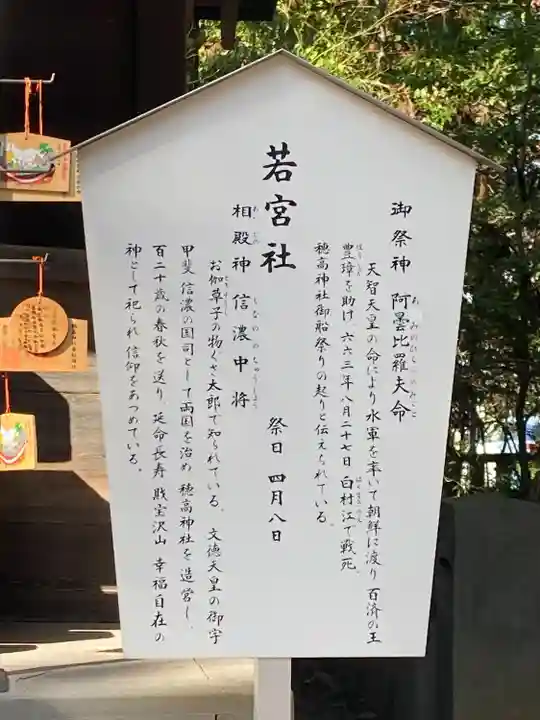 御祭神 阿曇比羅夫命
天智天皇の命により水軍を率いて朝鮮に渡り 百済の王
豊璋を助け 六六三年八月二十七日 白村江で戦死。
穂高神社御船祭りの起りと伝えられている。
若宮社
祭日 四月八日
相殿神 信濃中将
お伽草子の物ぐさ太郎で知られている。 文徳天皇の御宇
甲斐 信濃の国司として両国を治め 穂高神社を造営し、
百二十歳の春秋を送り、延命長寿 賎宝沢山 幸福自在の
神として祀られ 信仰をあつめている。